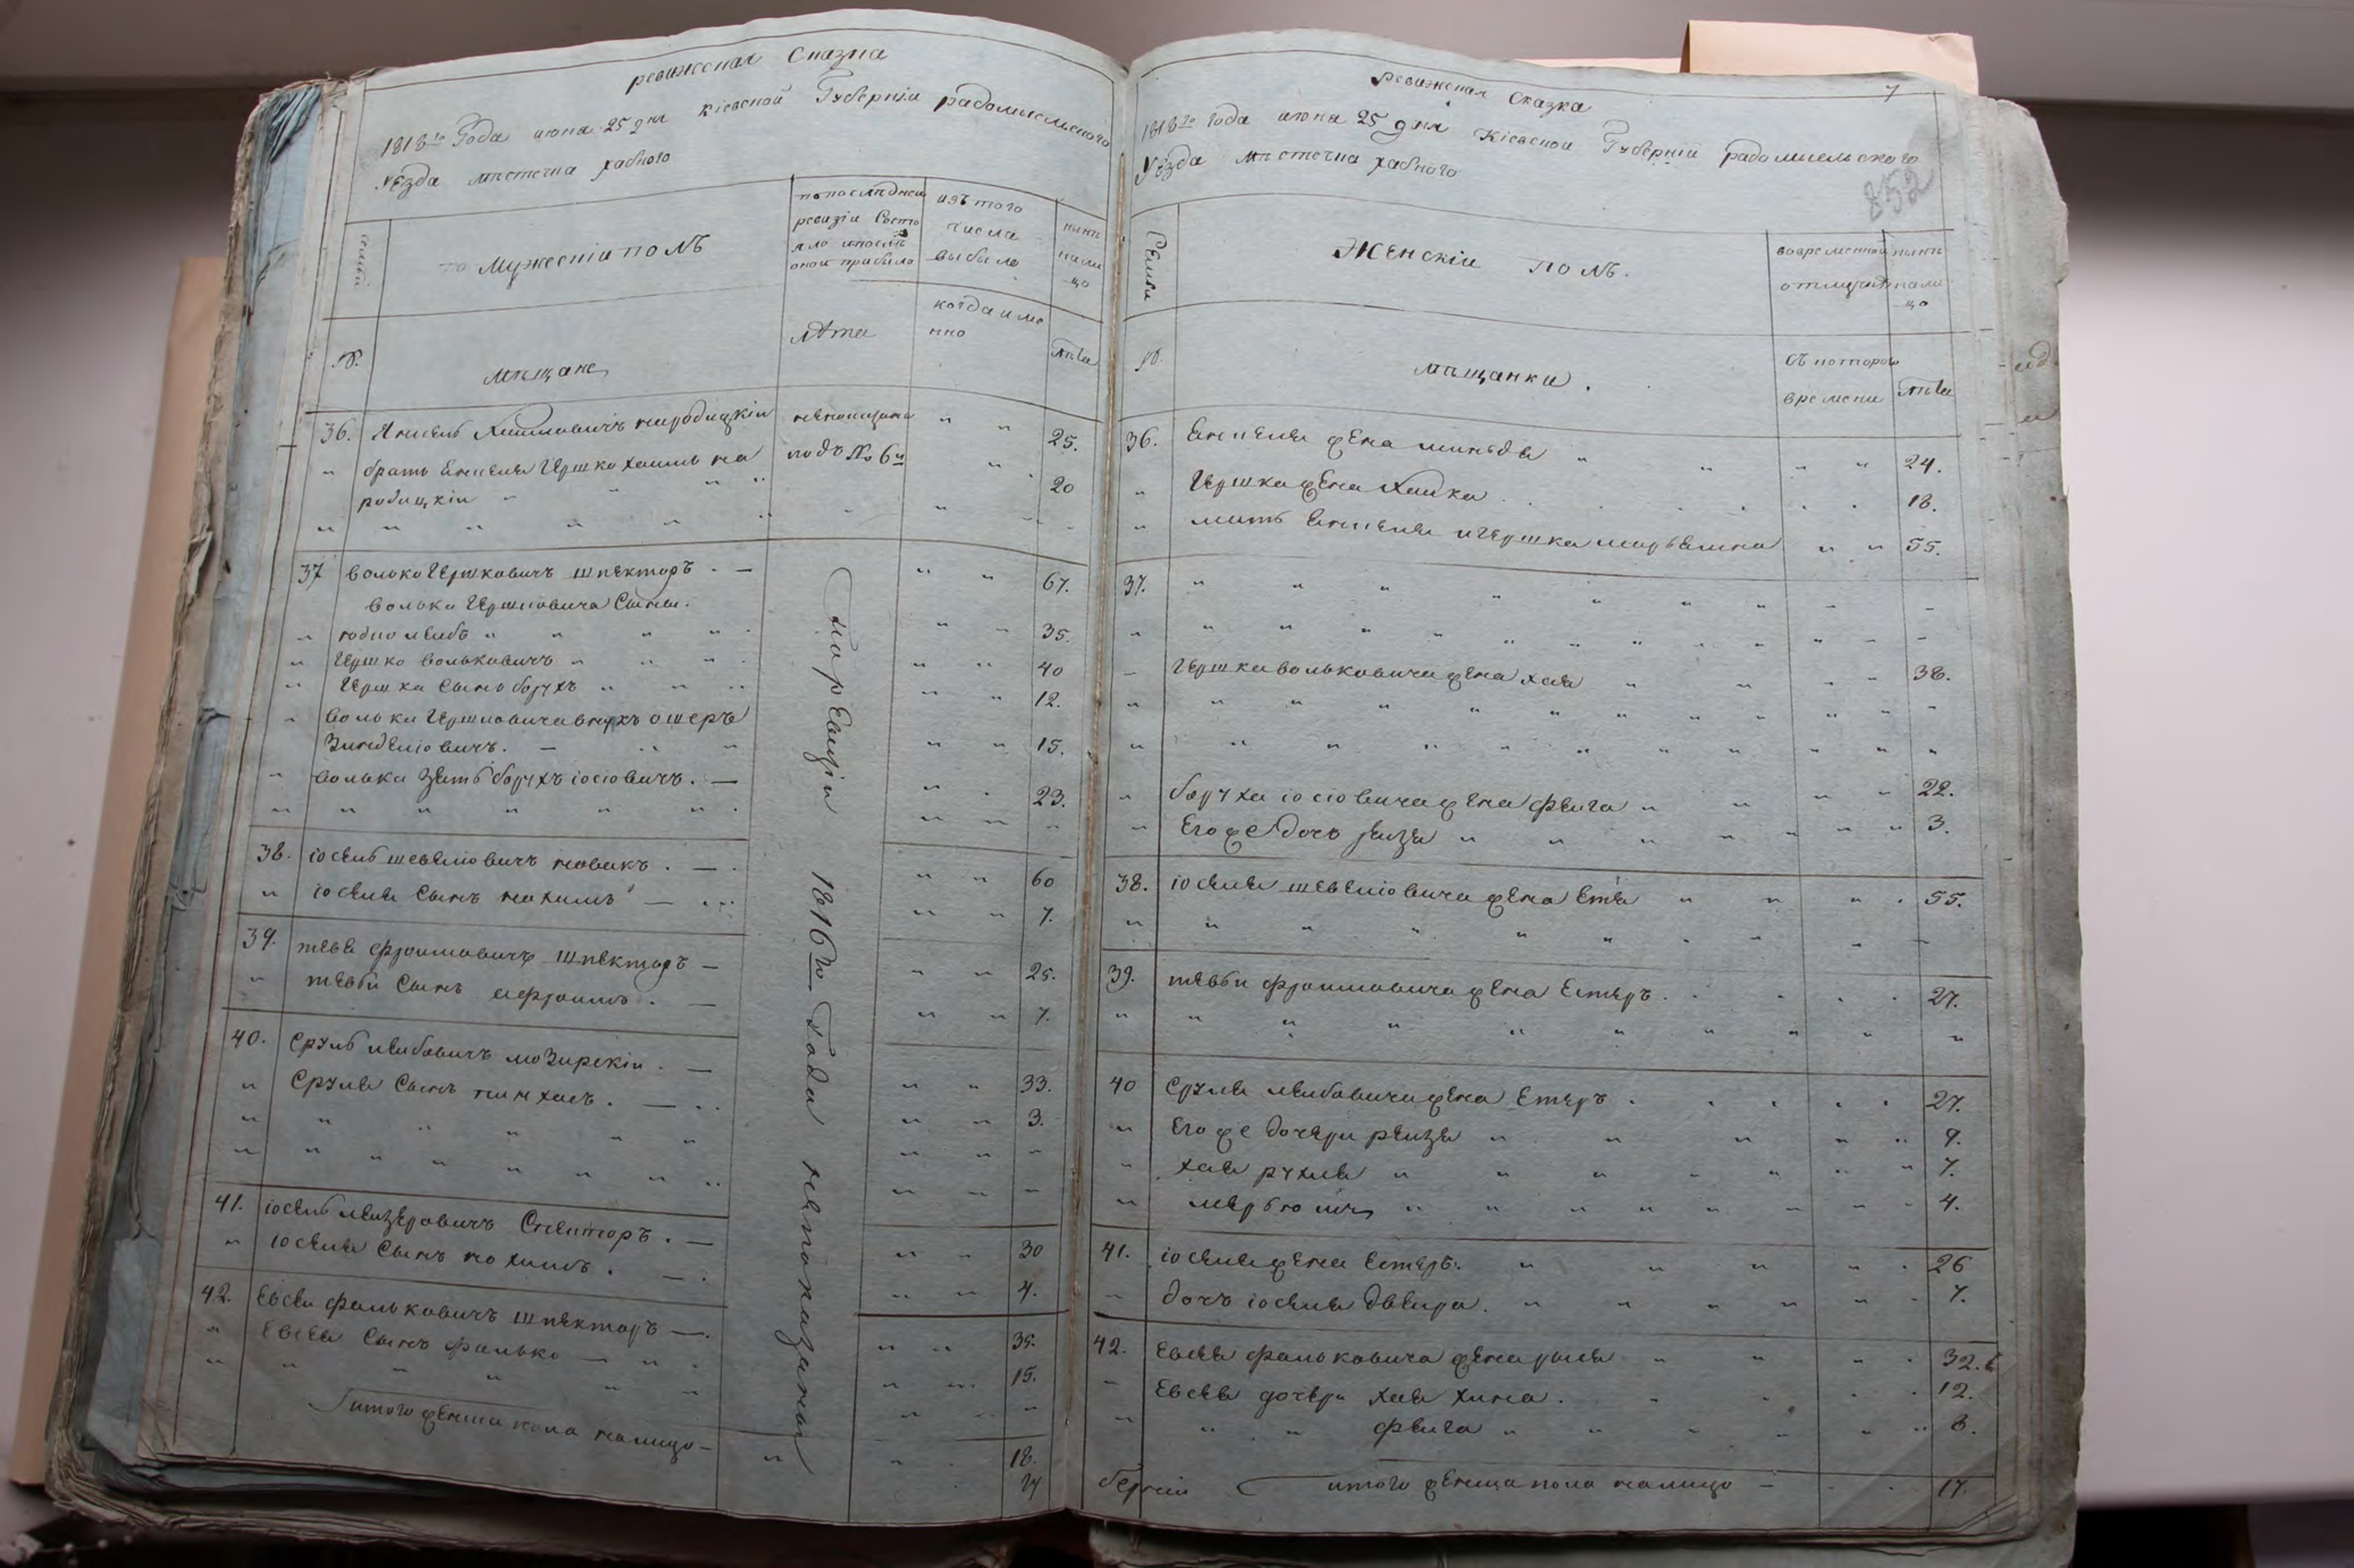 ревижская Сказка
1818го Года июня 25 дня Кіевской Губерніи радомысльского
Уезда местечка хабного
семьи
Мужескіи полъ
по последней
ревизіи Состо
яло и после
оной прибыло
изъ того
числа
выбыло
ныне
нали
цо
№.
мещане
лета
когда име
нно
лета
36. Аншель Хаимовичъ народицкіи непоказана " " 25.
" братъ Еншеля Гершко хаимъ на подъ № 6м " 20
родицкіи " " " "
37 волько Гершковичъ шпекторъ . — " " 67.
волька Гершковича Сыны.
" Іодко лейбъ " " " " " " 35.
" Гершко вольковичъ " " " " " 40
" Гершка Сынъ борухъ " " " " " 12.
" волька Гершковича внукъ ошеръ
Зинделіовичъ. — " " " " 15.
" волька Зять борухъ іосіовичъ. — " " 23.
38. іосель шевеліовичъ новикъ . — . " " 60
" іоселя Сынъ нохимъ — " " 7.
39. тевя фроимовичъ шпекторъ — " " 25.
" тевьи Сынъ ефроимъ . — " " 7.
40. Сруль лейбовичъ мозирскіи . — " " 33.
" Сруля Сынъ пинхасъ . — " " 3.
41. іосель лейзеровичъ Спекторъ . — " " 30
" іоселя Сынъ нохимъ . — " " 4.
42. Евсеи фальковичъ шпекторъ —. " " 35.
" Евсея Сынъ фалько — " " " 15.
итого наличо — " " 18.
По ревизіи 1816го Года непоказаны
ревижская Сказка
7
1818го года июня 25 дня Кіевской Губерніи радомысльского
Уезда местечка хабного
852
Семьи
Женскіи полъ.
во временной
отлучке
ныне
нали
цо
№.
мещанки.
Съ которого
времени
лета
36. Еншеля жена миньдя " " " " 24.
" Гершка жена хаика . . . . 18.
" мать Еншеля и Гершка " " 55.
37. " " " " " " " " –
" " " " " " " " –
– Гершка вольковича жена хая " " " " 38.
" боруха іосіовича жена фейга " " " " 22.
" Его же дочь рейзя " " " " " " 3.
38. іоселя шевеліовича жена Етя " " " . 55.
39. тевьи фроимовича жена Естеръ . . . . 27.
40 Сруля лейбовича жена Етеръ . . . . . 27.
" Его же дочери рейзя " " " " " 9.
" хая рухля " " " " " " 7.
" " " " " " " " 4.
41. іоселя жена Естеръ. " " " " . 26
" дочъ іоселя двейра. " " " " " " 7.
42. Евсея фальковича жена рыся " " " . 32.
" Евсея дочери хая хима . . . . 12.
" " " фейга " " " " " " 8.
итого женска пола налицо – . . 17.